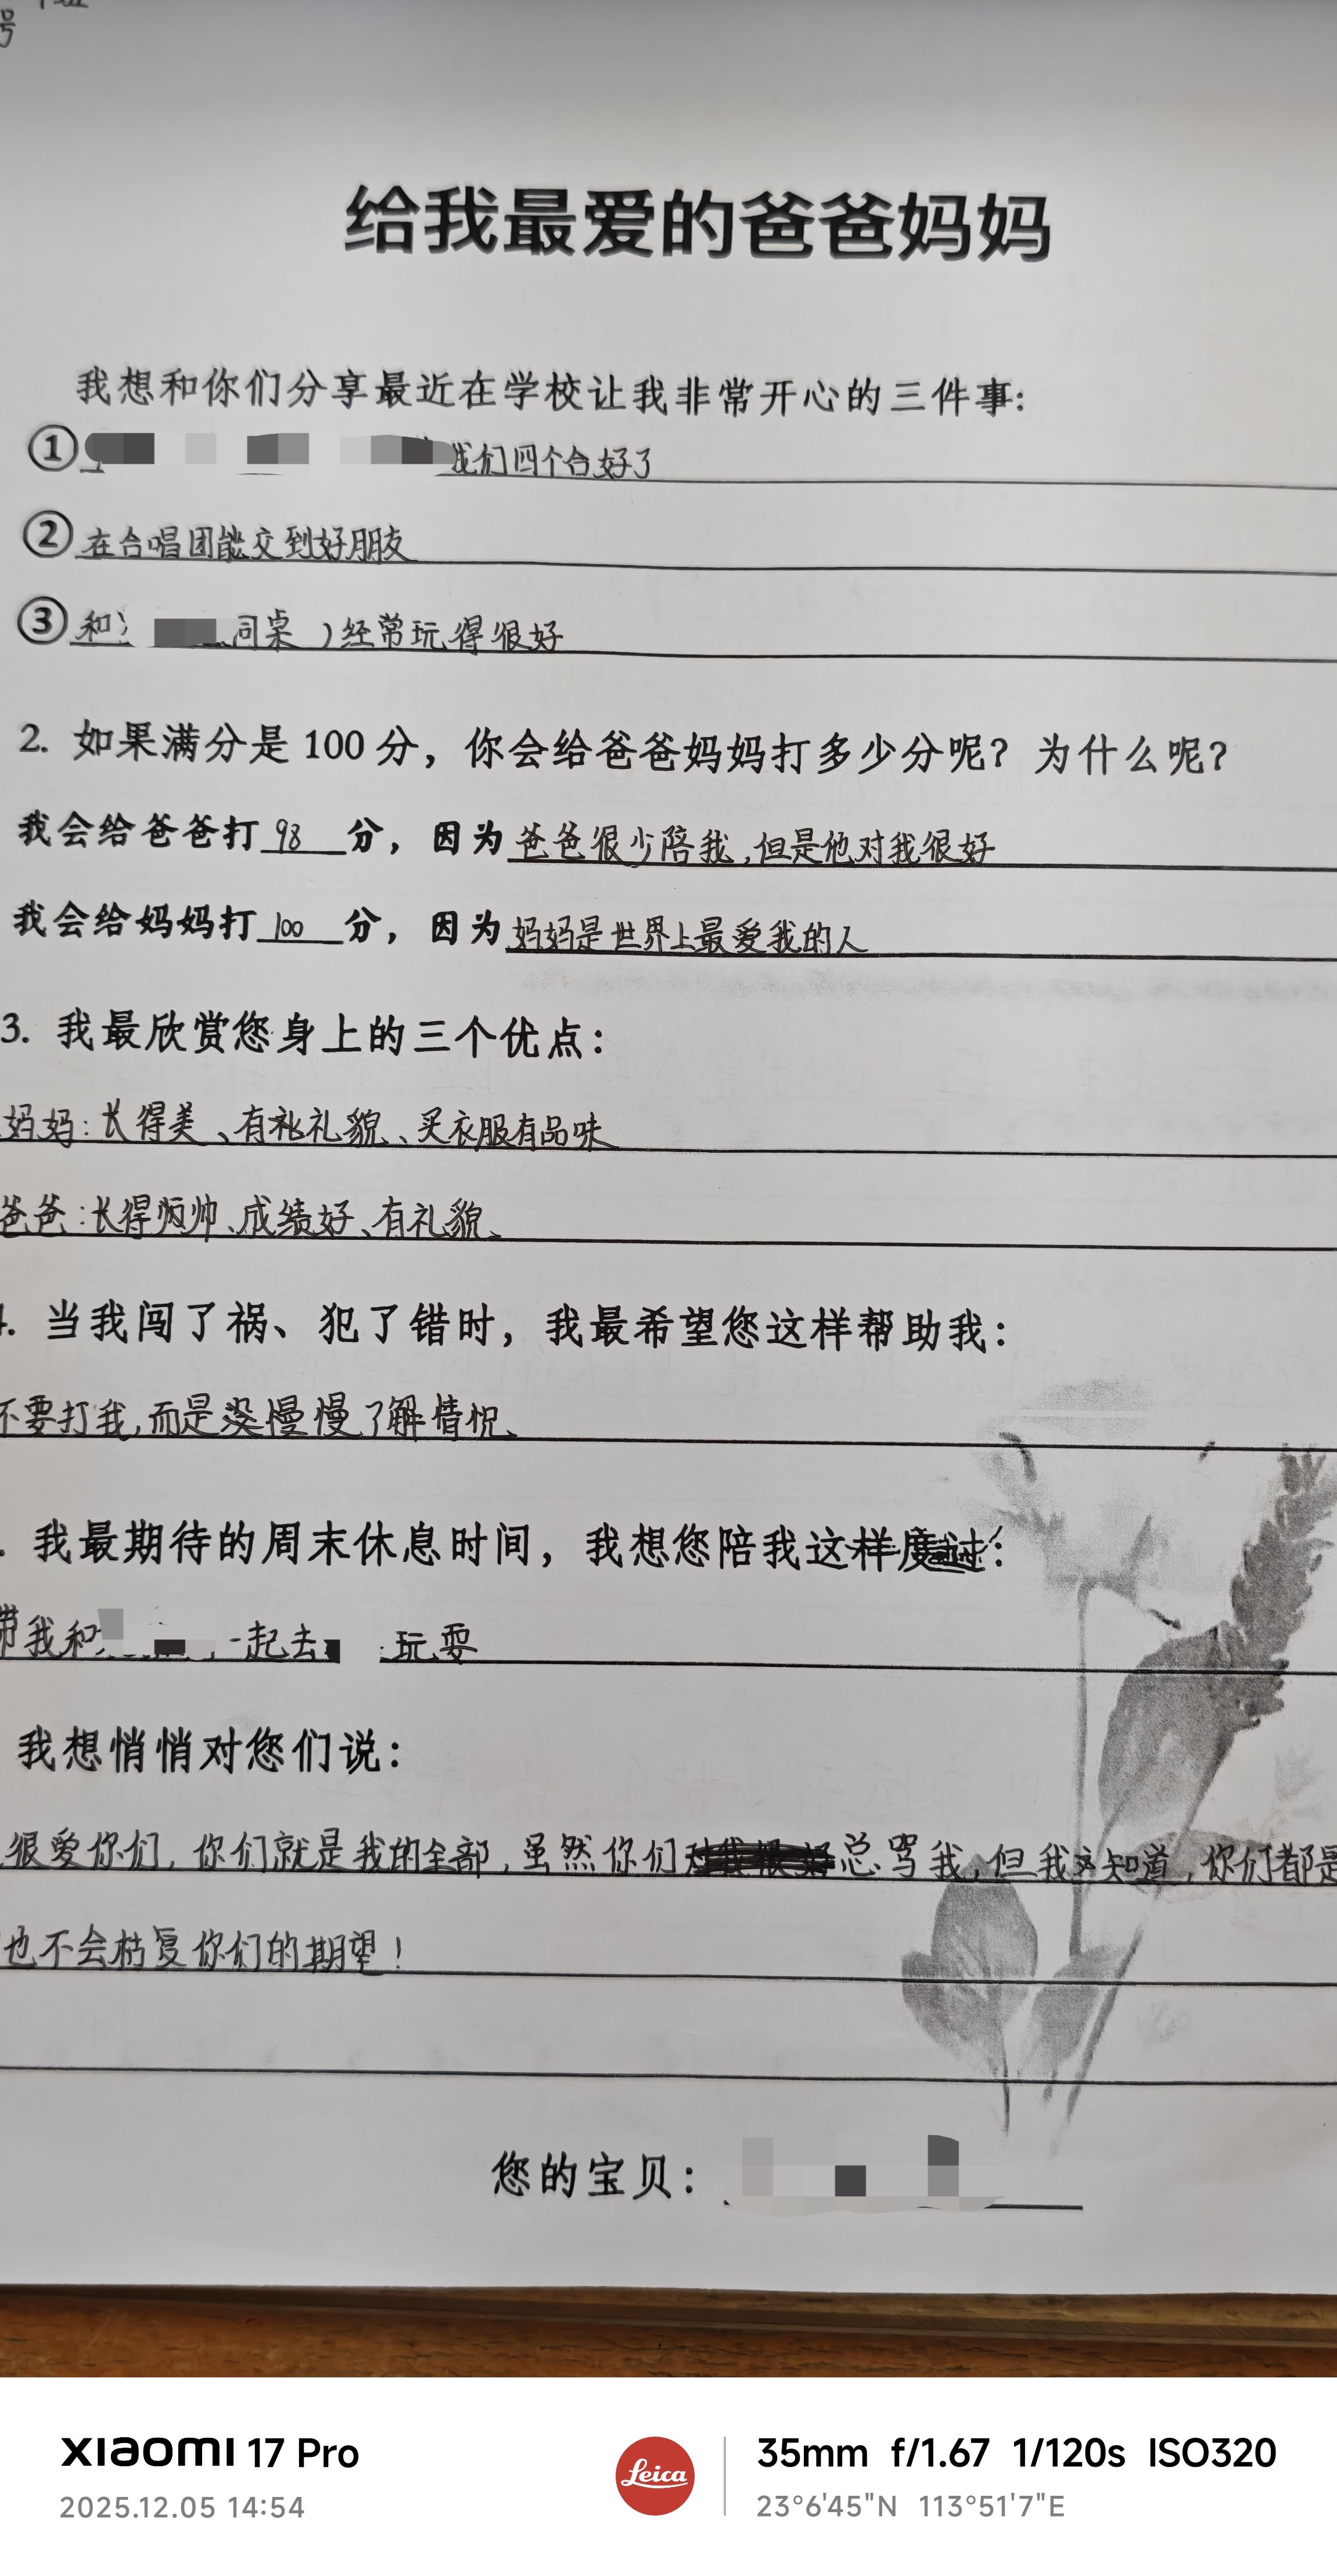 号
给我最爱的爸爸妈妈
我想和你们分享最近在学校让我非常开心的三件事:
① 我们四个合好了
② 在合唱团能交到好朋友
③ 和 同桌 )经常玩得很好
2. 如果满分是 100 分，你会给爸爸妈妈打多少分呢？为什么呢？
我会给爸爸打 98 分，因为 爸爸很少陪我,但是他对我很好
我会给妈妈打 100 分，因为 妈妈是世界上最爱我的人
3. 我最欣赏您身上的三个优点：
妈妈:长得美、有礼貌、买衣服有品味
爸爸:长得帅、成绩好、有礼貌、
4. 当我闯了祸、犯了错时，我最希望您这样帮助我：
不要打我,而是慢慢了解情况、
. 我最期待的周末休息时间，我想您陪我这样度过：
带我和 一起去 玩耍
我想悄悄对您们说：
很爱你们,你们就是我的全部,虽然你们总骂我,但我知道,你们都是
也不会辜复你们的期望！
您的宝贝：
xiaomi 17 Pro
2025.12.05 14:54
Leica
35mm f/1.67 1/120s ISO320
23°6'45"N 113°51'7"E